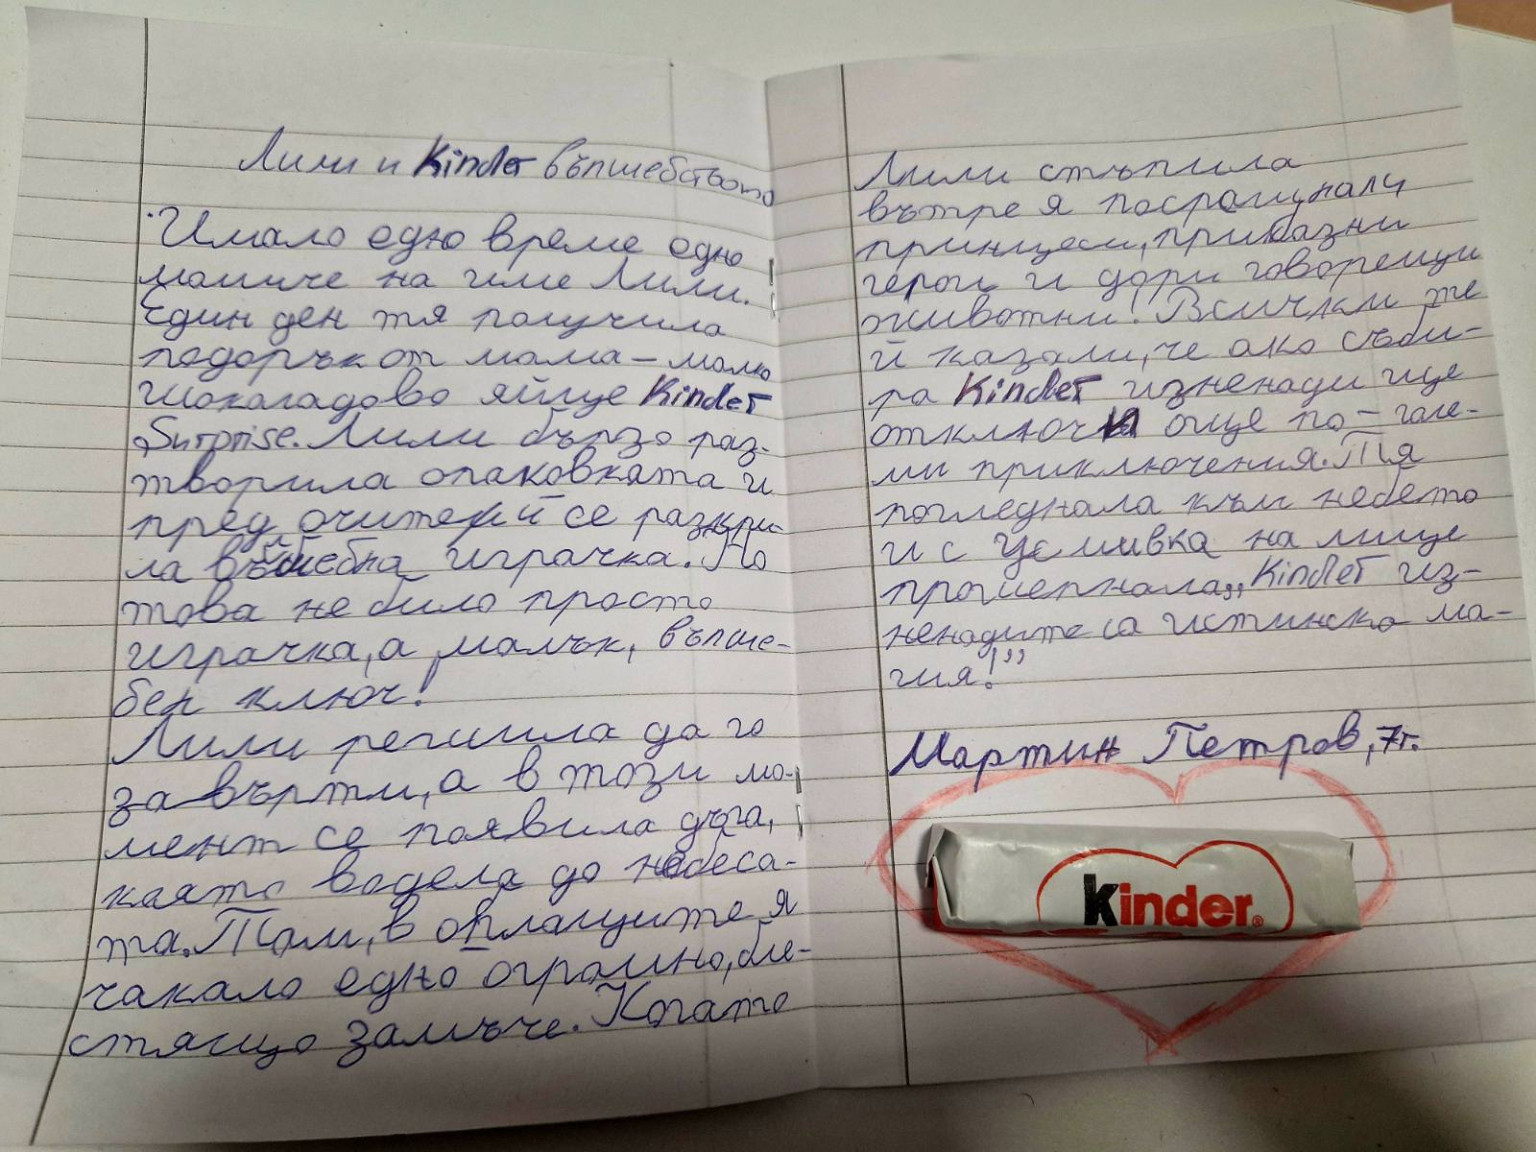 Лили и Kinder вълшебството
Имало едно време едно
момиче на име Лили.
Един ден тя получила
подарък от мама – малко
шоколадово яйце Kinder
Surprise. Лили бързо раз-
творила опаковката и
пред очите ѝ се разкри-
ла вълшебна играчка. Но
това не било просто
играчка, а малък, вълше-
бен ключ!
Лили решила да го
завърти, а в този мо-
мент се появила дъга,
която водела до небеса-
та. Там, в облаците я
чакало едно огромно, бле-
стящо замъче. Когато
Лили стъпила
вътре я посрещнали
принцеси, приказни
герои и дори говорещи
животни! Всички те
й казали, че ако съби-
ра Kinder изненади ще
отключи още по-голе-
ми приключения. Тя
погледнала към небето
и с усмивка на лице
прошепнала,, Kinder из-
ненадите са истинска ма-
гия!”
Мартин Петров, 7г.
Kinder®